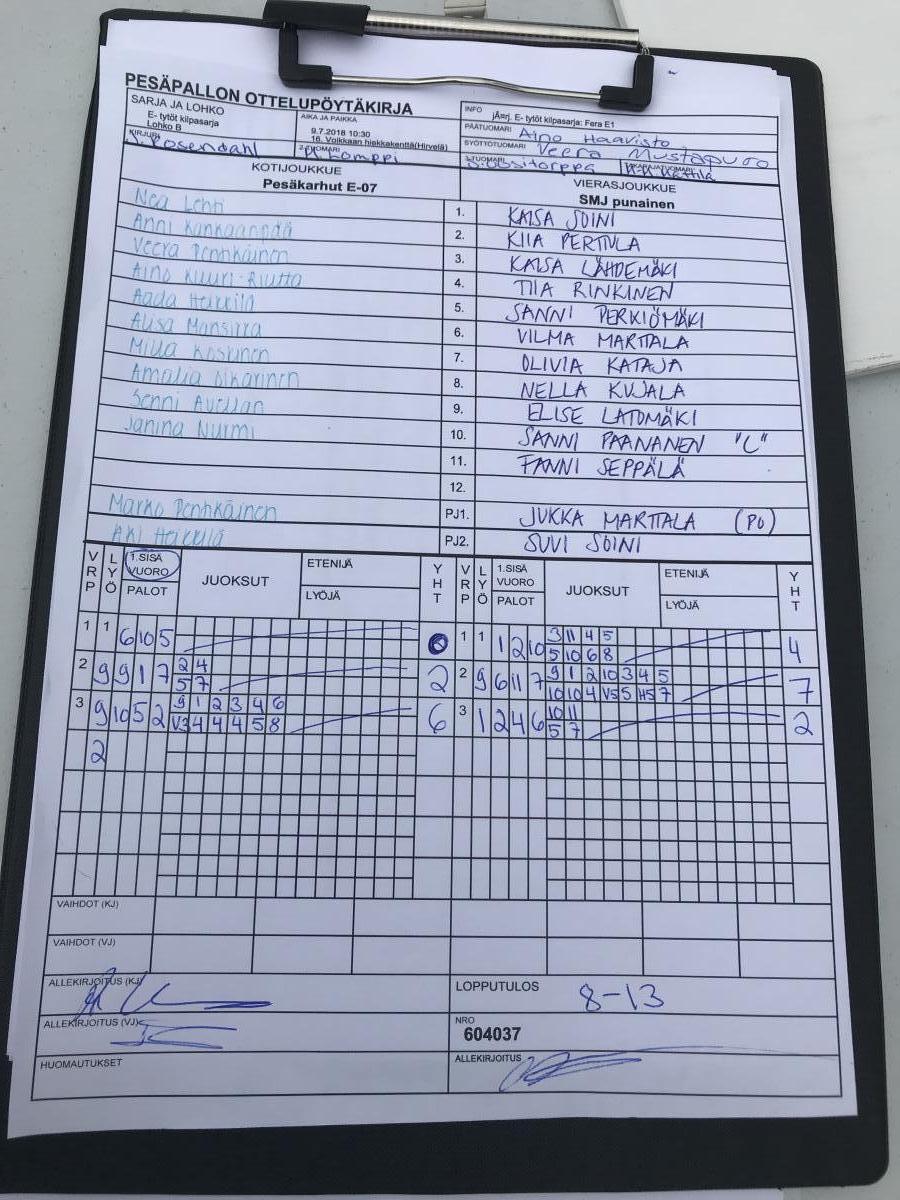 PESÄPALLON OTTELUPÖYTÄKIRJA
SARJA JA LOHKO
E- tytöt kilpasarja
Lohko B
AIKA JA PAIKKA
9.7.2018 10:30
16. Volkkaan hiekkakenttä(Hirvelä)
INFO
jÄ¤rj. E- tytöt kilpasarja: Fera E1
PÄÄTUOMARI Aino Haavisto
SYÖTTÖTUOMARI Veera Mustapuro
KIRJURI J. Rosendahl
2-TUOMARI
3-TUOMARI
KOTIJOUKKUE
Pesäkarhut E-07
VIERASJOUKKUE
SMJ punainen
Nea Lehti 1. KAISA SOINI
Anni Kankaanpää 2. KIIA PERTTULA
Veera Penhkäinen 3. KAISA LÄHDEMÄKI
Aino Kuuri-Riutta 4. TIIA RINKINEN
Aada Heikkilä 5. SANNI PERKIÖMÄKI
Alisa Mansikka 6. VILMA MARTTALA
Milla Koskinen 7. OLIVIA KATAJA
Amalia Oikarinen 8. NELLA KUJALA
Senni Avellan 9. ELISE LATOMÄKI
Janina Nurmi 10. SANNI PAANANEN "C"
11. FANNI SEPPÄLÄ
12.
Marko Penhkäinen PJ1. JUKKA MARTTALA (PO)
Aki Heikkilä PJ2. SUVI SOINI
VRP LYÖ 1.SISÄ VUORO PALOT JUOKSUT ETENIJÄ LYÖJÄ YHT VRP LYÖ 1.SISÄ VUORO PALOT JUOKSUT ETENIJÄ LYÖJÄ YHT
1 1 6 10 5 0 1 1 1 2 10 3 11 4 5 4
5 10 6 8
2 9 9 1 7 2 4 2 2 9 6 11 7 9 1 2 10 3 4 5 7
5 7 10 10 4 V5 5 H5 7
3 9 10 5 2 9 1 2 3 4 6 6 3 1 2 4 6 10 11 2
V3 4 4 4 5 8 5 7
2
VAIHDOT (KJ)
VAIHDOT (VJ)
ALLEKIRJOITUS (KJ)
LOPPUTULOS 8-13
ALLEKIRJOITUS (VJ)
NRO
604037
HUOMAUTUKSET
ALLEKIRJOITUS